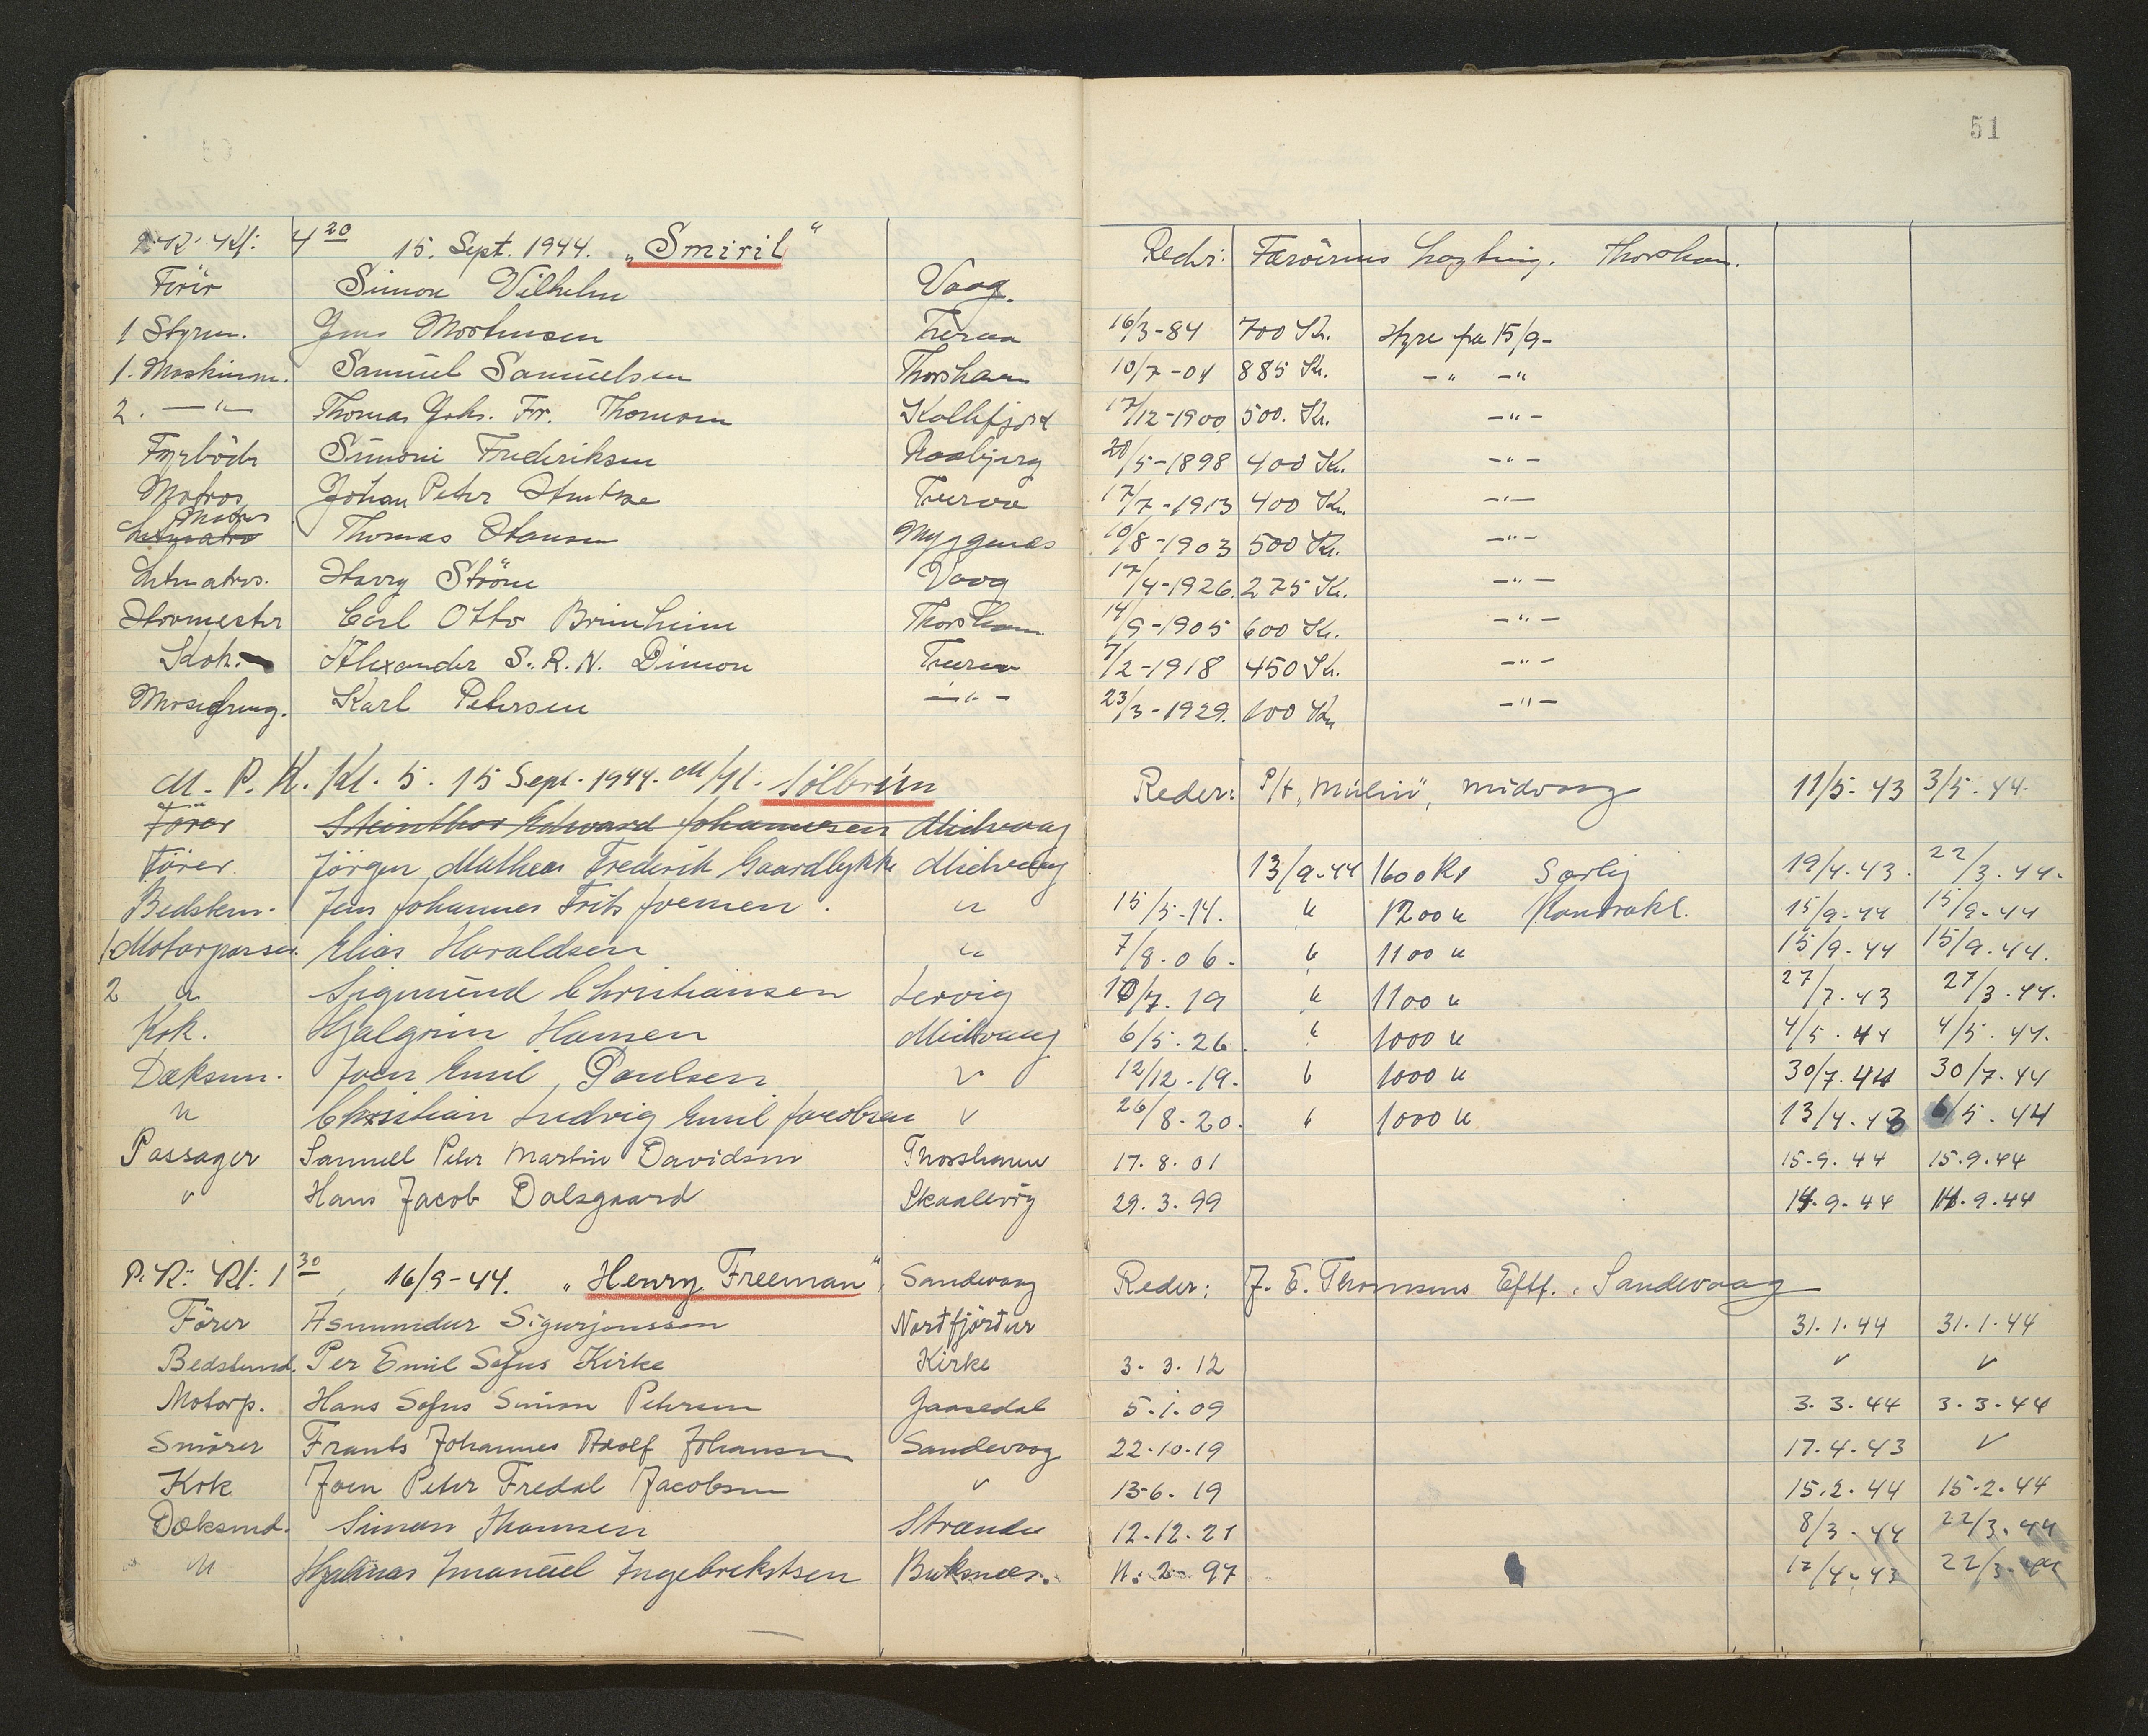 51
P. K. Kl: 4 20 15. Sept. 1944. „Smiril“ Reder: Færöernes Lagting. Thorshavn.
Förer Simon Vilhelm Vaag.
1 Styrm. Jens Mortensen Tveraa 16/3-84 700 Kr. Hyre fra 15/9-
1. Maskinm. Samuel Samuelsen Thorshavn 10/7-04 885 Kr. -"- -"
2. -"- Thomas Johs. Fr. Thomsen Kollefjord 17/12-1900 500. Kr. -"-
Fyrböder Simoni Frederiksen Næsbjerg 20/5-1898 400 Kr. -"-
Matros Johan Peter Tveraa 17/7-1913 400 Kr. -"-
Matros
Letmatros Thomas Hansen Myggenæs 10/8-1903 500 Kr. -"-
Letmatros. Harry Ström Vaag 17/4-1926. 275 Kr. -"-
Hovmester Carl Otto Brimheim Thorshavn 14/9-1905 600 Kr. -"-
Kok. Alexander S. R. N. Dimon Tveraa 7/2-1918 450 Kr. -"-
Karl Petersen -"- 23/3-1929. 100 Kr. -"-
M. P. K. Kl. 5. 15 Sept. 1944. M/Sk. Sólbrún Reder: P/t „Mulin“, Midvaag 11/5-43 3/5-44-
Förer Steinthor Edward Johannesen Midvaag
Förer. Jörgen Mathias Frederik Gaardlykke Midvaag 13/9-44 1600 Kr Særlig 19/4.43. 22/3.44.
Bedstem. Jens Johannes Frits Joensen. " 15/5-14. " 1200 " Kontrakt. 15/9-44 15/9-44
1 Motorpasser. Elias Haraldsen " 7/8.06. " 1100 " 15/9-44 15/9-44.
2 " Sigmund Christiansen Lervig 10/7.19 " 1100 " 27/7.43 27/3.44.
Kok. Hjalgrim Hansen Midvaag 6/5.26. " 1000 " 4/5.44 4/5.44.
Dæksm. Joen Emil Poulsen " 12/12.19. " 1000 " 30/7.44 30/7.44
" Christian Ludvig Emil Jacobsen " 26/8.20. " 1000 " 13/4.43 6/5.44
Passager Samuell Peter Martin Davidsen Thorshavn 17.8.01 15.9.44 15.9.44
" Hans Jacob Dalsgaard Skaalevig 29.3.99 14.9.44 14.9.44
P. K: Kl: 1 30, 16/9-44. „Henry Freeman“, Sandevaag Reder: J. E. Thomsens Eftf., Sandevaag
Förer Asmundur Sigurjonsson Nortfjörtur 31.1.44 31.1.44
Bedstemd. Per Emil Sofus Kirke Kirke 3.3.12 " "
Motorp. Hans Sofus Simon Petersen Gaasedal 5.1.09 3.3.44 3.3.44
Smörer Frants Johannes Adolf Johansen Sandevaag 22.10.19 17.4.43 "
Kok Joen Peter Fredal Jacobsen " 13.6.19 15.2.44 15.2.44
Dæksmd. Simon Thomsen Strande 12.12.21 8/3.44 22/3.44
" Hjalmar Imanuel Ingebrektsen Buksnes. 11.2.97 17/4.43 22/3.44